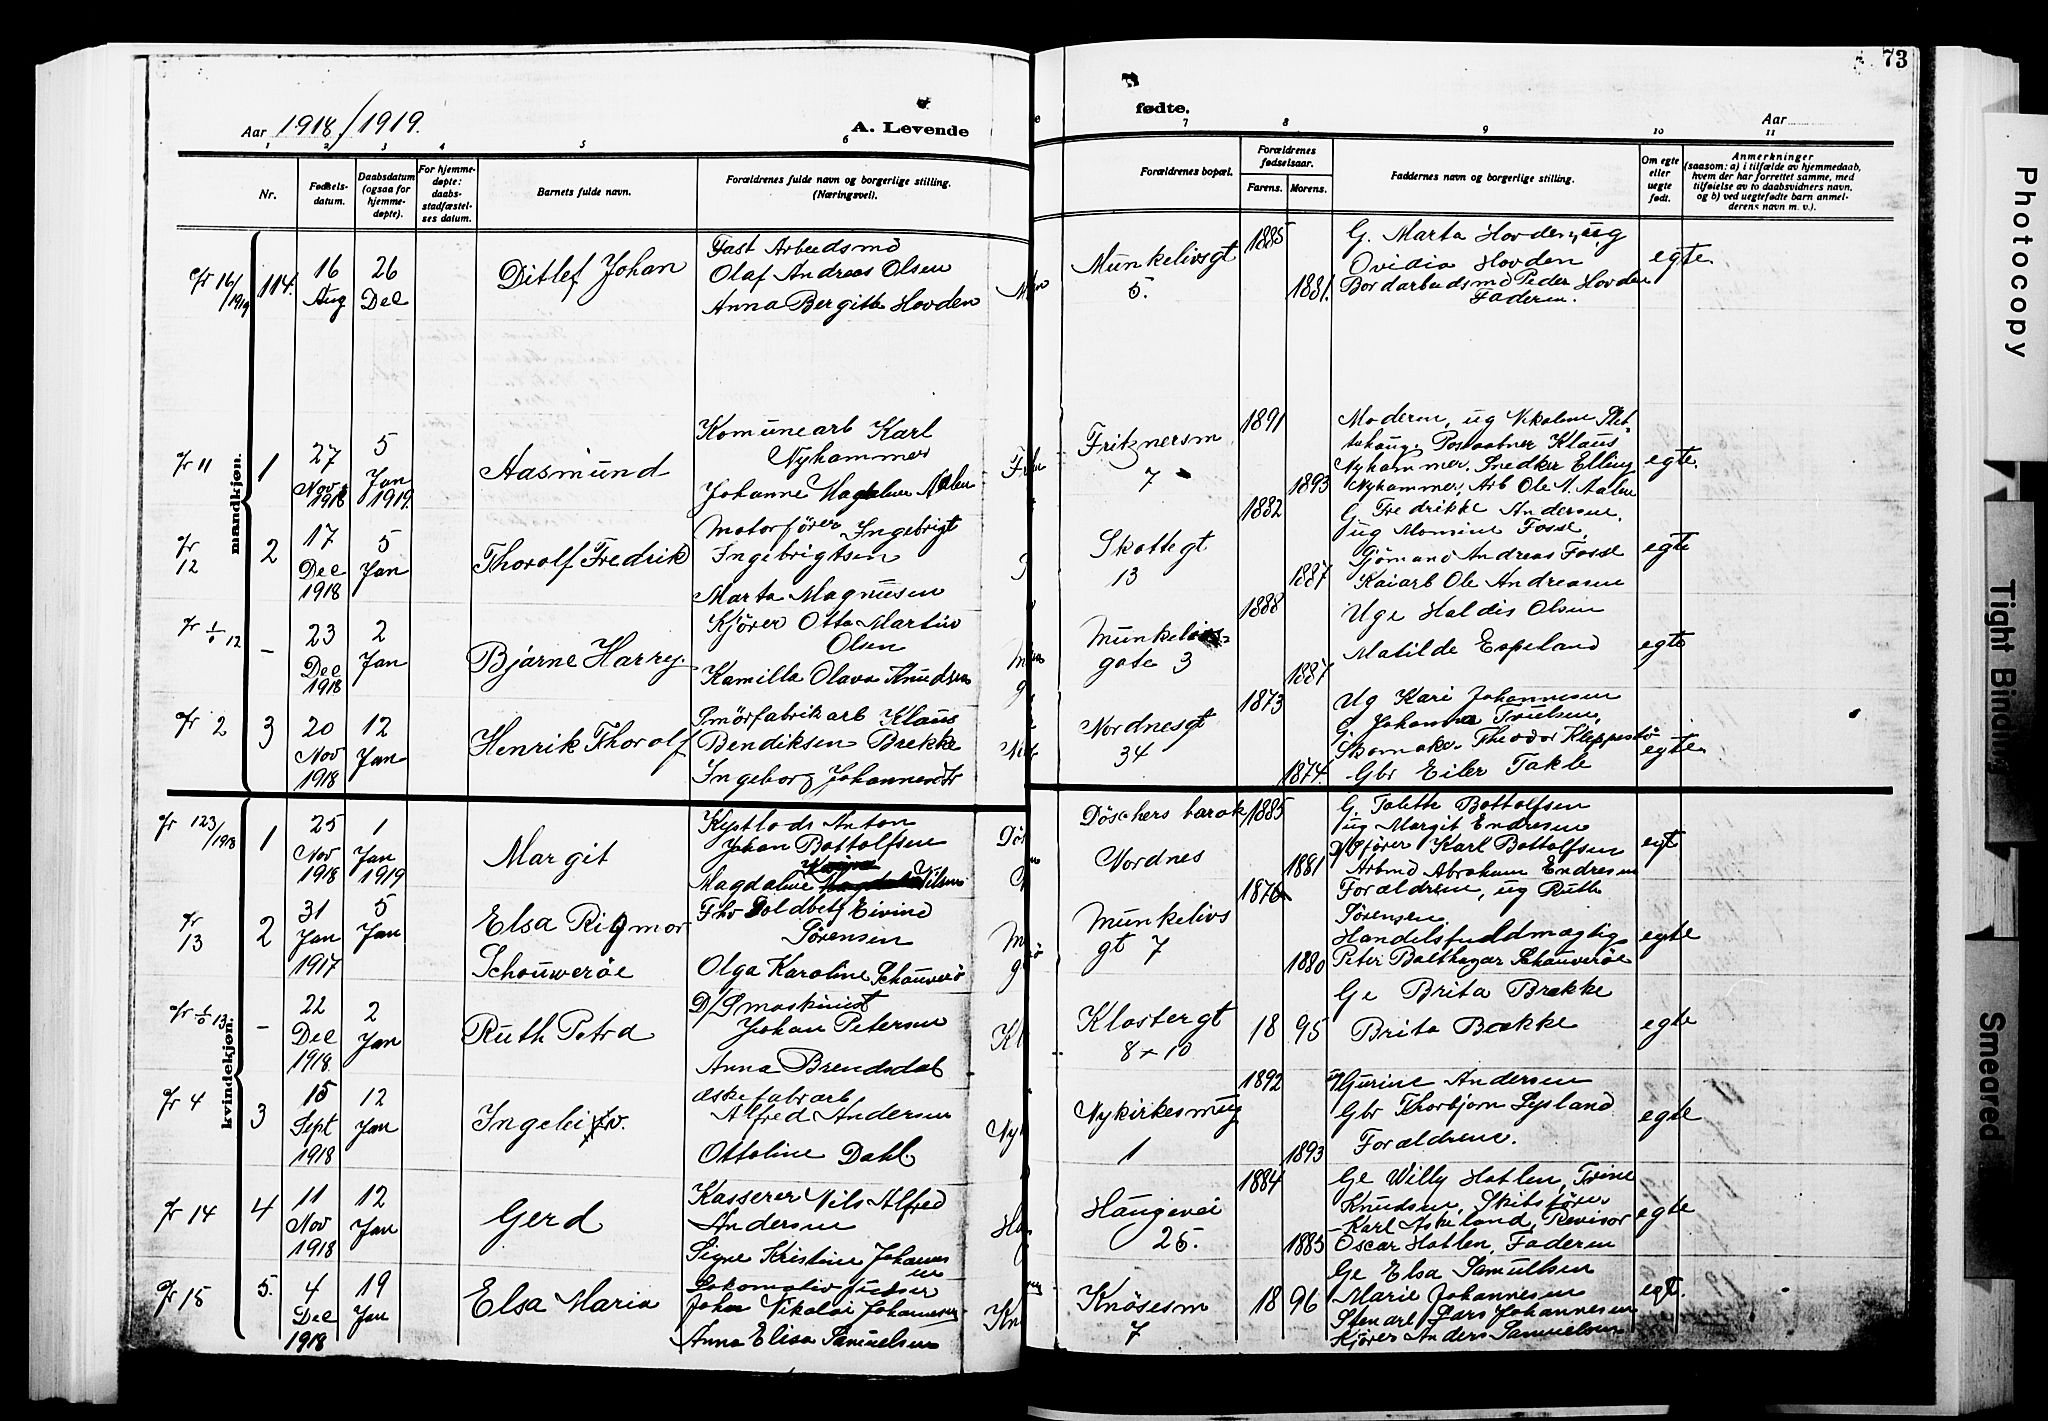 73
Aar 1918/1919.
A. Levende
fødte.
Aar
1 2 3 4 5 6 7 8 9 10 11
Nr.
Fødsels-
datum.
Daabsdatum
(ogsaa for
hjemme-
døpte).
For hjemme-
døpte:
daabs-
stadfæstel-
ses datum.
Barnets fulde navn.
Forældrenes fulde navn og borgerlige stilling.
(Næringsvei).
Forældrenes bopæl.
Forældrenes
fødselsaar.
Farens. Morens.
Faddernes navn og borgerlige stilling.
Om egte
eller
uegte
født.
Anmerkninger
(saasom: a) i tilfælde av hjemmedaab,
hvem der har forrettet samme, med
tilføielse av to daabsvidners navn,
og b) ved uegtefødte barn anmel-
derens navn m. v.).
mandkjøn.
16/1919 114.
16
Aug
26
Dec
Ditlef Johan
Fast Arbeidsmd
Olaf Andreas Olsen
Anna Bergitte Hovden
Munkelivsgt
5.
1885
1881.
G. Marta Hovden, ug
Ovidia Hovden
Bordarbeidsmd Peder Hovden
Faderen.
egte
11 1
27
Nov
1918
5
Jan
1919.
Aasmund
Komunearb Karl
Nyhammer
Johanne Magdalene
Fritznersm
7
1891
1893
Moderen, ug Nikoline Slet-
tehaug, Postaabner Klaus
Nyhammer, Snedker Elling
Nyhammer, Arb Ole
egte
12 2
17
Dec
1918
5
Jan
Thorolf Fredrik
Motorfører Ingebrigt
Ingebrigtsen
Marta Magnusen
Skottegt
13
1882
1887
G Fredrikke Andersen,
ug Momine Fosse,
Sjømand Andreas Fosse
Kaiarb Ole Andreasen
egte
12 –
23
Dec
1918
2
Jan
Bjarne Harry.
Kjører Otto Martin
Olsen
Kamilla Olava Knudsen
Munkelivs-
gate 3
1888
1887
Uge Haldis Olsen
Matilde Espeland
egte
2 3
20
Nov
1918
12
Jan
Henrik Thorolf
Smørfabrik arb Klaus
Bendiksen Brekke
Ingeborg Johannesdtr
Nordnesgt
34
1873
1874.
Ug Kari Johannesen
G Johanna Truelsen,
Skomaker Theodor Kleppestø
Gbr Eiler Takle
egte
kvindekjøn.
123/1918 1
25
Nov
1918
1
Jan
1919
Margit
Kystlods Anton
Johan Bottolfsen
Magdaline Nilsen
Døschers barak
Nordnes
1885
1881
G. Talette Bottolfsen
ug Margit Endresen
Karl Bottolfsen
Arbmd Abraham Endresen
egt
13 2
31
Jan
1917
5
Jan
Elsa Rigmor
Schouwerøe
Fhv Toldbetj Eivind
Sørensen
Olga Karoline Schouverø
Munkelivs
gt 7
1876
1880
Forældrene, ug Ruth
Sørensen
Handelsfuldmægtig
Peter Balthazar Schouverøe
egte
13 –
22
Dec
1918
2
Jan
Ruth Petra
D/Smaskinist
Johan Petersen
Anna Brendsdal
Klostergt
8 + 10
18 95
Ge Brita Brekke
Brita Brekke
egte
4 3
15
Sept
1918
12
Jan
Ingebj
Æskefabrarb
Alfred Andersen
Ottoline Dahl.
Nykirkesmug
1
1892
1893
ug Gurine Andersen
Gbr Thorbjørn Lysland
Forældrene.
egte
14 4
11
Nov
1918
12
Jan
Gerd
Kasserer Nils Alfred
Andersen
Signe Kristine Johannes
en
Haugevei
25.
1884
1885
Ge Willy Hatlen, Trine
Knudsen, Skibsfører
Karl Askeland, Revisor
Oscar Hatlen, Faderen
egte
15 5.
4
Dec
1918
19
Jan
Elsa Maria
Lokomotiv pudser
Johan Nikolai Johannesen
Anna Elisa Samuelsen
Knøsesm
7
18 96
Ge Elsa Samuelsen
Marie Johannesen
Stenarb Lars Johannesen
Kjører Anders Samuelsen
egt.
Photocopy
Tight Binding
Smeared